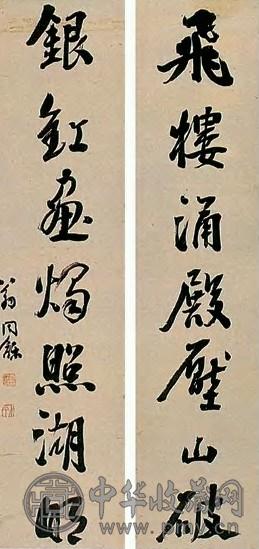 飛樓涌殿壓山破
銀釭畫燭照湖明
翁同龢
中华收藏网